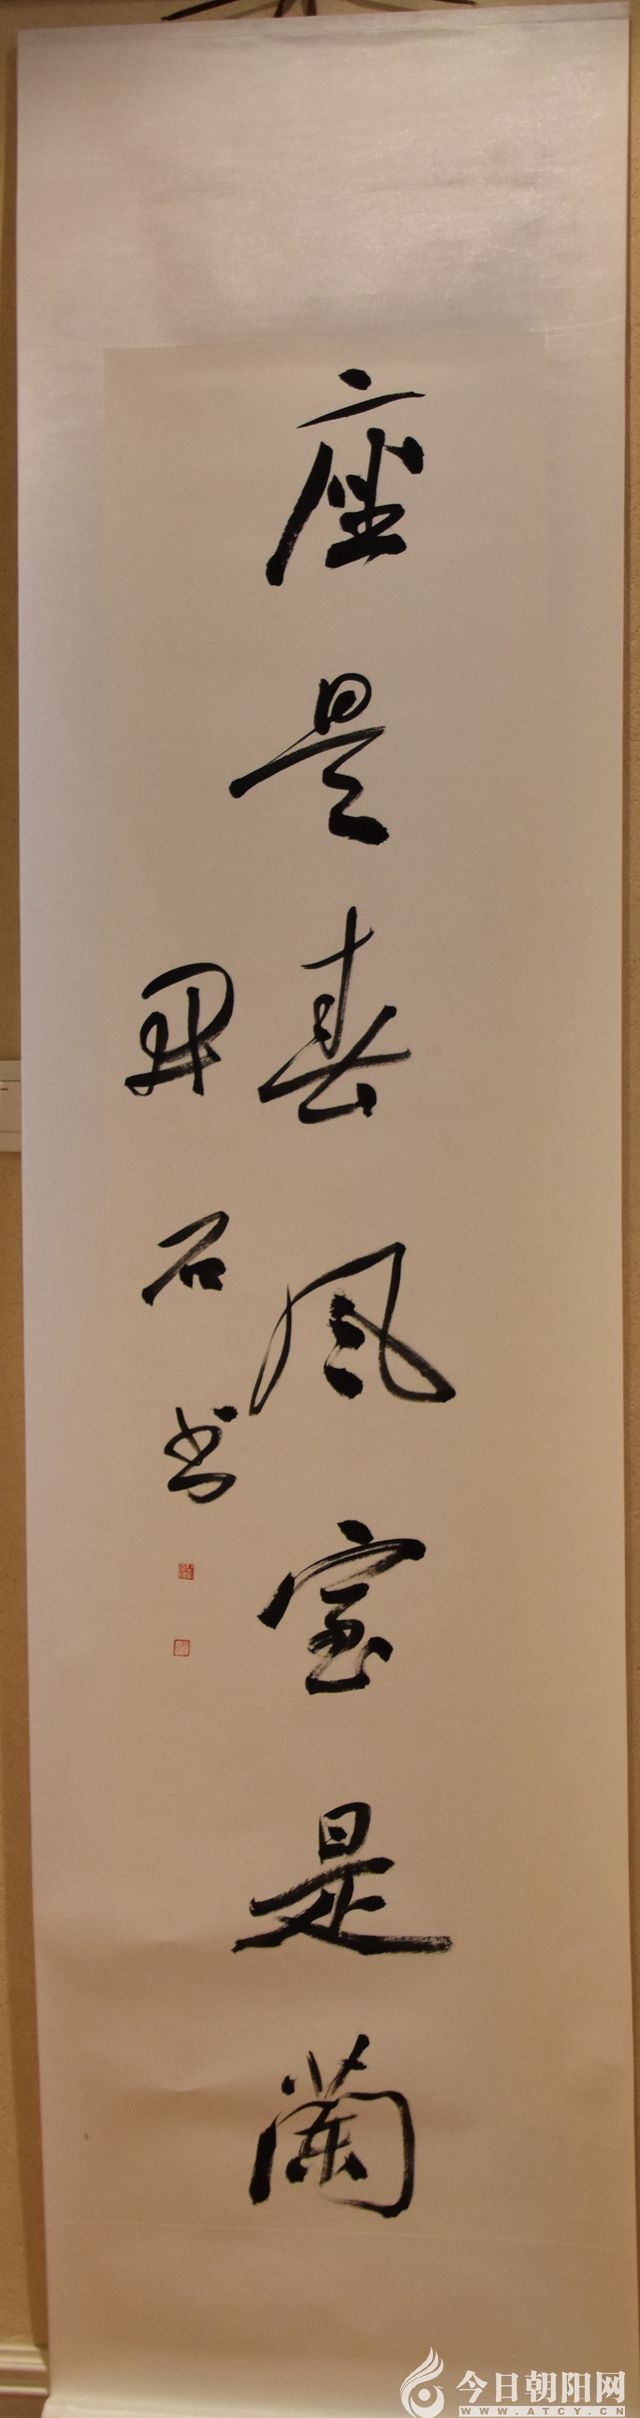 座是春风室是蘭
石书
今日朝阳网
WWW.ATCY.CN